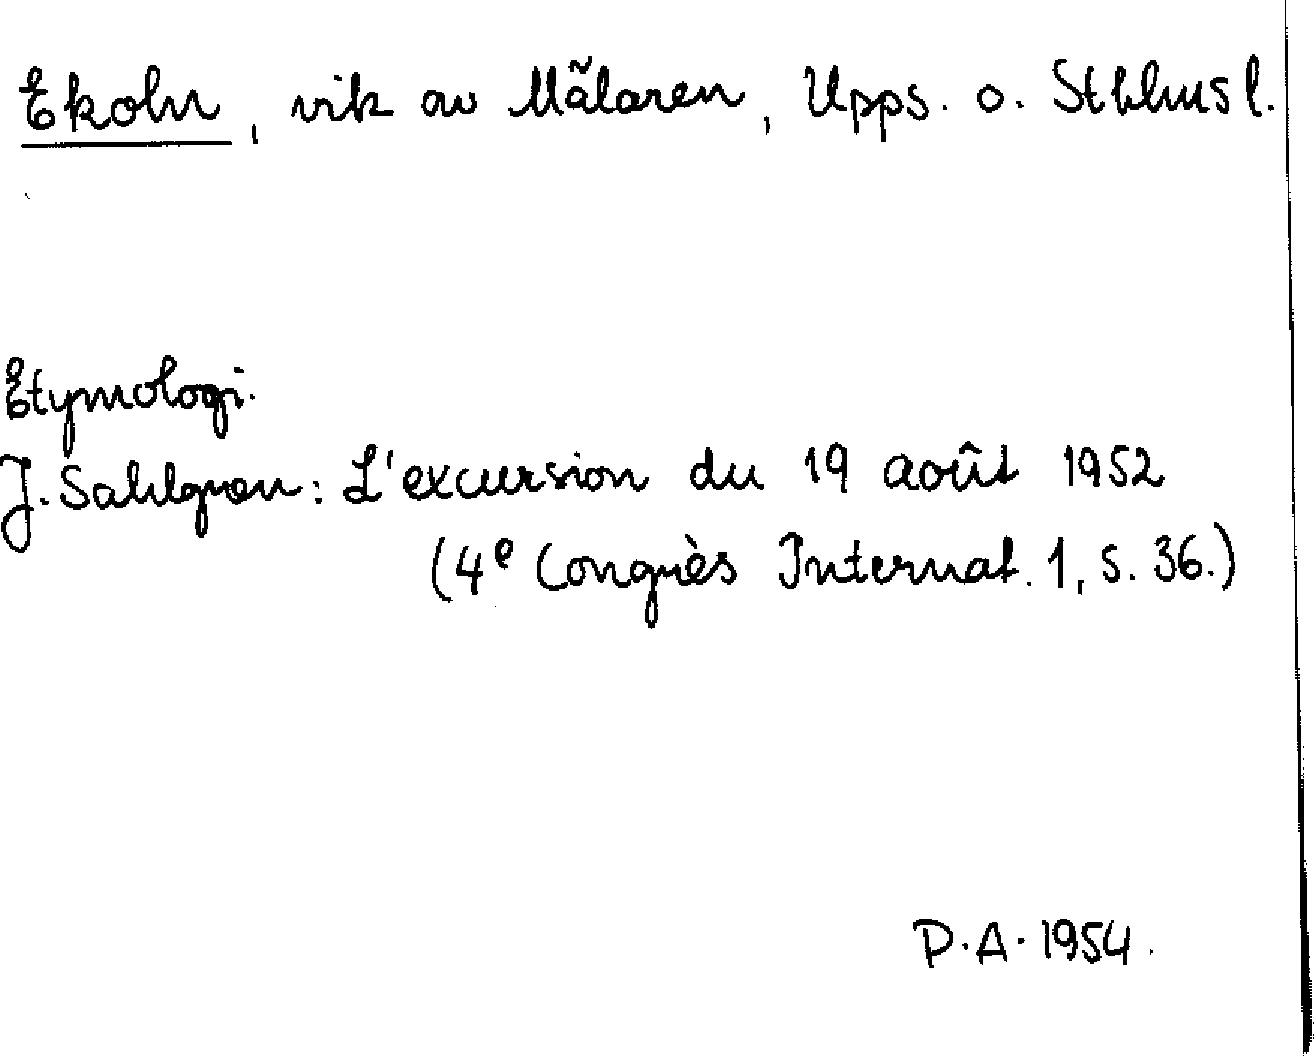 Ekoln, vik av Mälaren, Upps. o. Sthlms l.
Etymologi.
J. Sahlgren: L'excursion du 19 août 1952
(4e Congrès Internat. 1, s. 36.)
P.A. 1954.